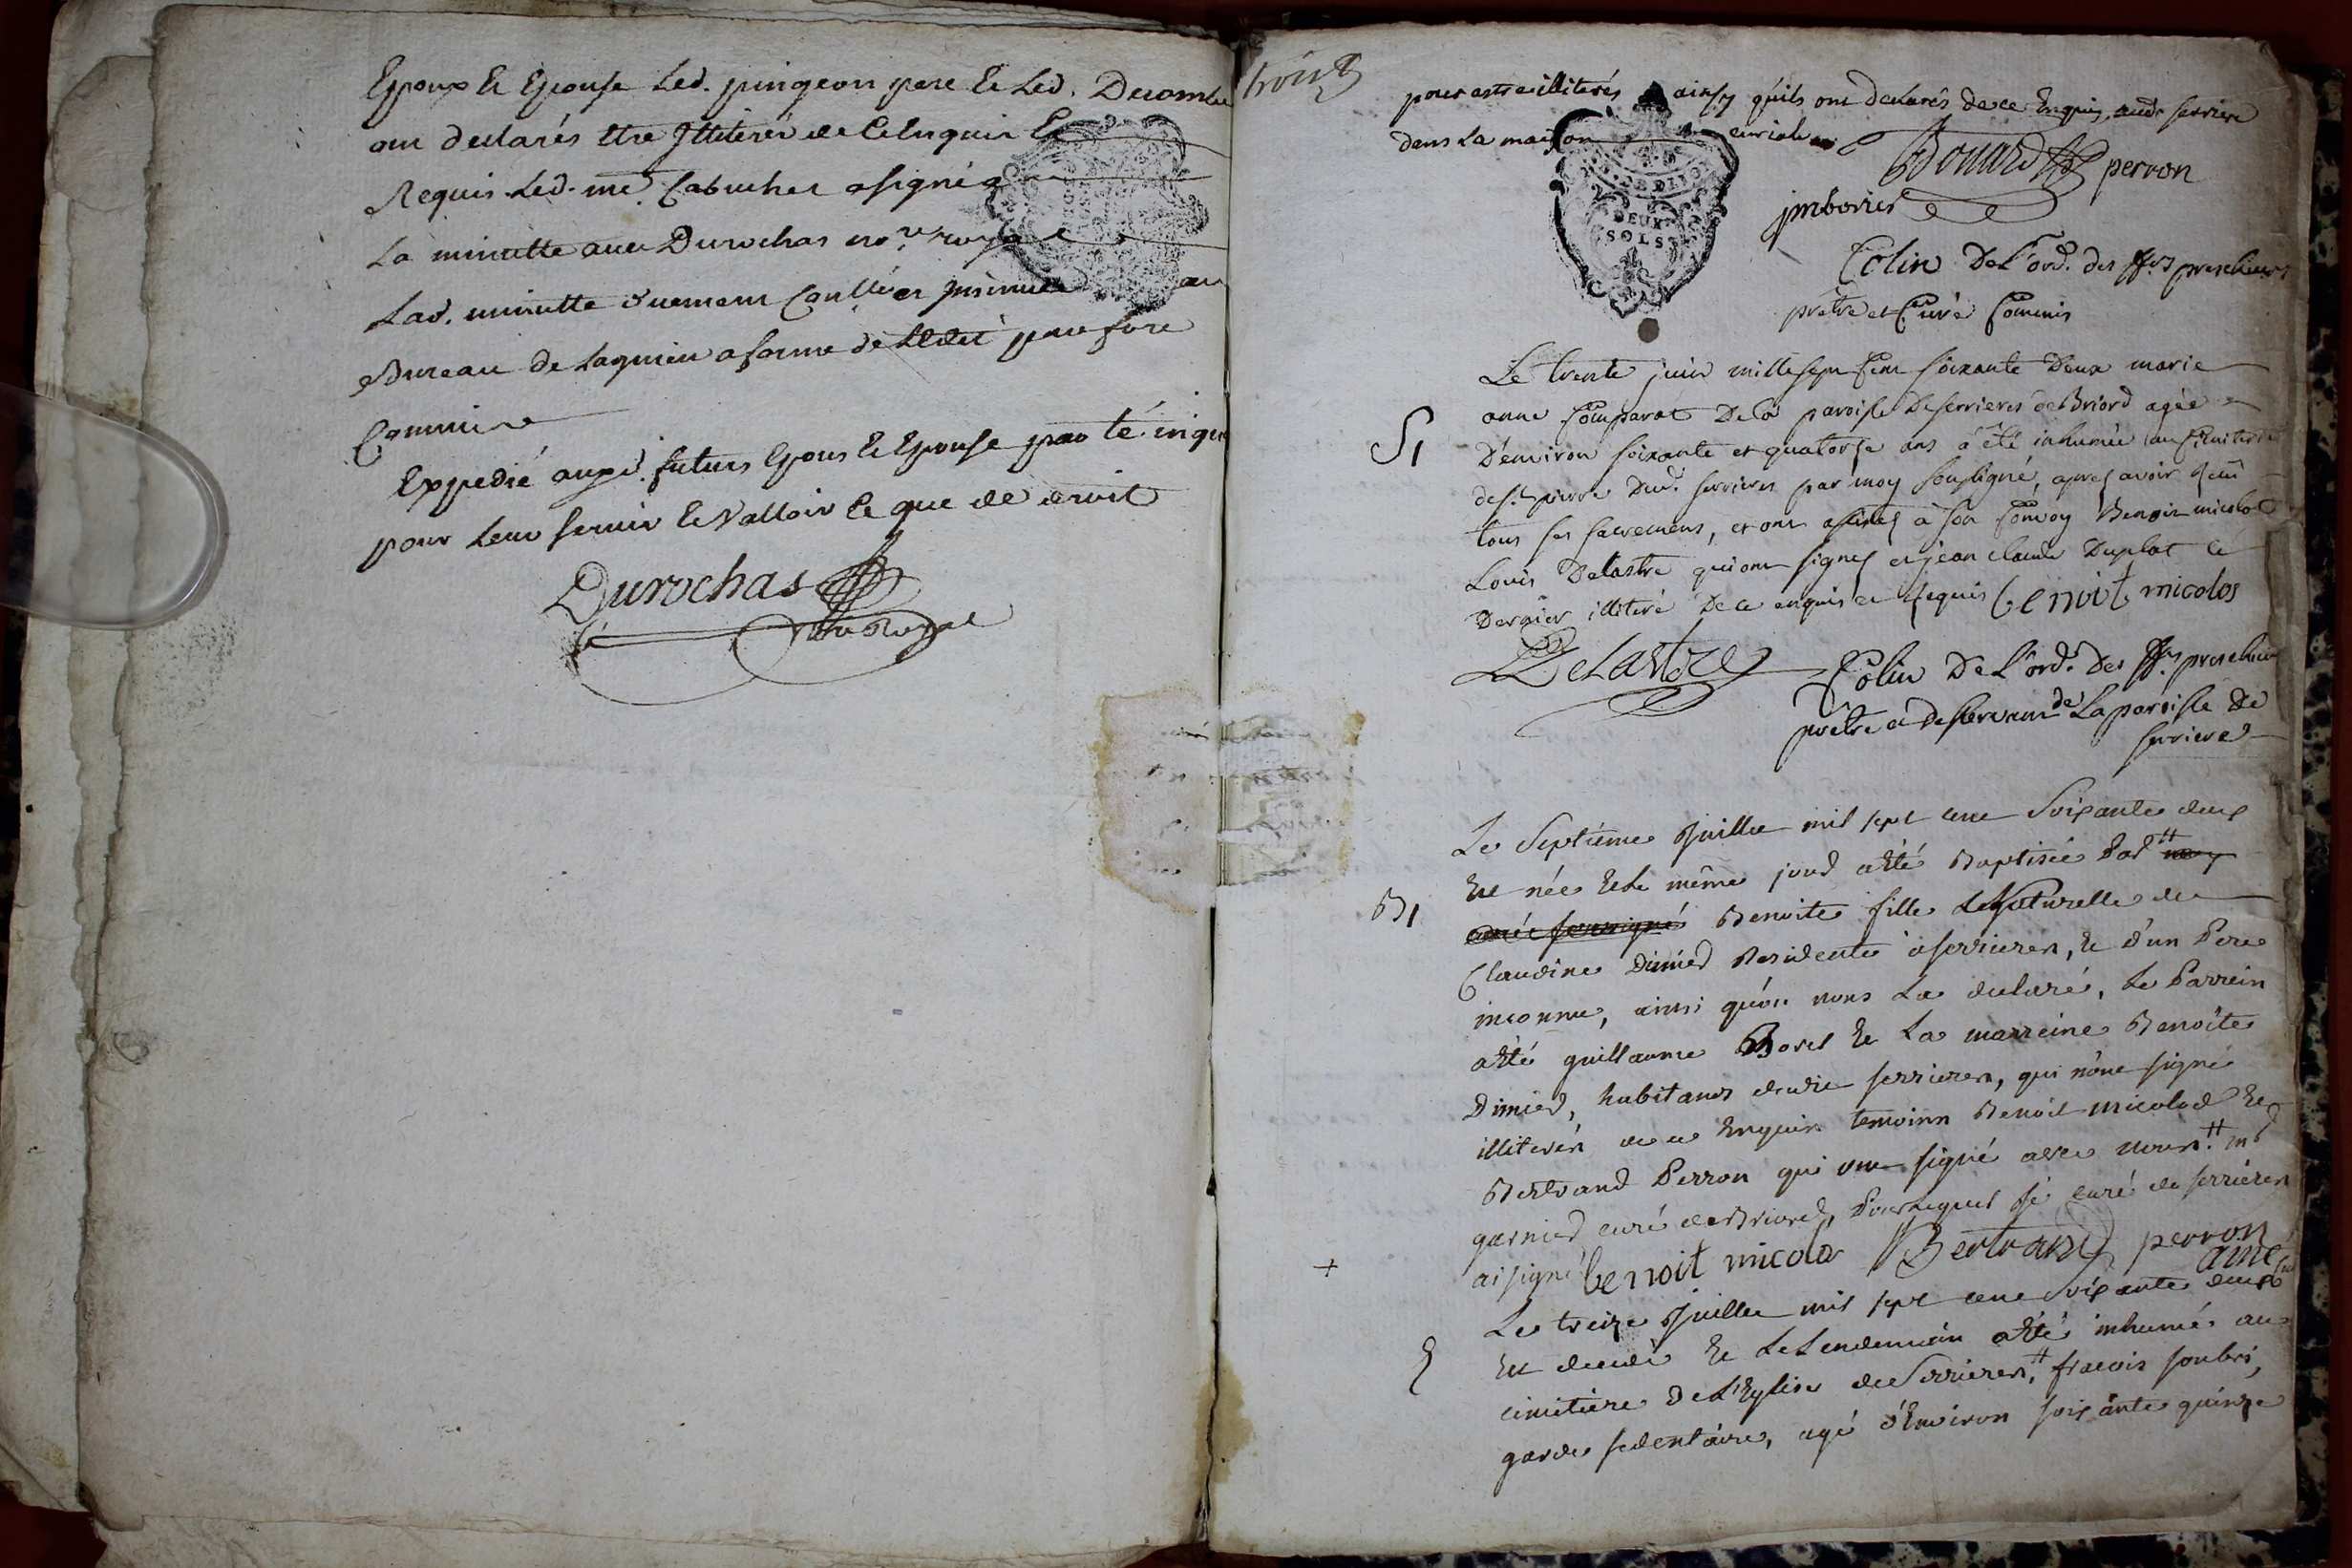 Epoux Et Epouse Led. pingeon pere Et Led. Decombe
ont declarés Etre Illiterés de Ce Enquis Et
Requis. Led. me. Cabuchet a signé a
La minutte avec Durochas nore. royal
Lad. minutte duement Conllée et Insinuée au
Bureau de Lagnieu a forme de Ledit
Commis
Expedié auxd. futurs Epous Et Epouse
pour Leur servir Et Valloir Ce que de droit
Durochas
Nore Royal
trois
pour estre illiterés ainsy qu'ils ont declarés de ce Enquis aud. serriere
dans La maison curiale
DEUX
SOLS
Bouard perron
Colin De L'ord. des ffres prescheurs
prêtre et Curé Commis
Le trente juin mille sept Cent soixante Deux marie
S1 anne Comparat De la paroisse De serrieres de Briord agée
D'environ soixante et quatorse ans a été inhumée au Cimitiere
de st. pierre Dud. serrieres par moy soussigné, apres avoir receu
tous ses sacremens, et ont assistés à son Convoy Benoit micolot
Louis Delastre qui ont signés et jean claude Duplat le
Dernier illiteré De ce enquis et requis benoit micolos
DeLastre Colin De L'ord. Des ffres prescheurs
prêtre et desservant de La paroisse De
serrieres
Le Septiéme Juillet mil sept cent Soixante deux
Est née et Le même jour a Eté Baptisée Par ++ moy
B1 curé soussigné Benoite fille Naturelle de
Claudine Dimier Residente a serrieres, et d'un Pere
inconnu, ainsi qu'on nous La declaré, Le Parrein
a Eté guillaume Borel et La marreine Benoite
Dimier, habitants dudit serrieres, qui n'ont signé
illiterés de ce Enquis temoins Benoit micolod et
Bertrand Perron qui ont signé avec nous. ++
garnier curé de Briord, Pour Lequel curé de serrieres
+ ai signé benoit micola Bertrand perron
ainé
Le treize Juillet mil sept cent Soixante deux
Est decedé et Le Lendemain a Eté inhumé au
cimetiére De L'Eglise de Serrieres, ++ fracois
garde sedentaire, agé d'Environ soixante quinze